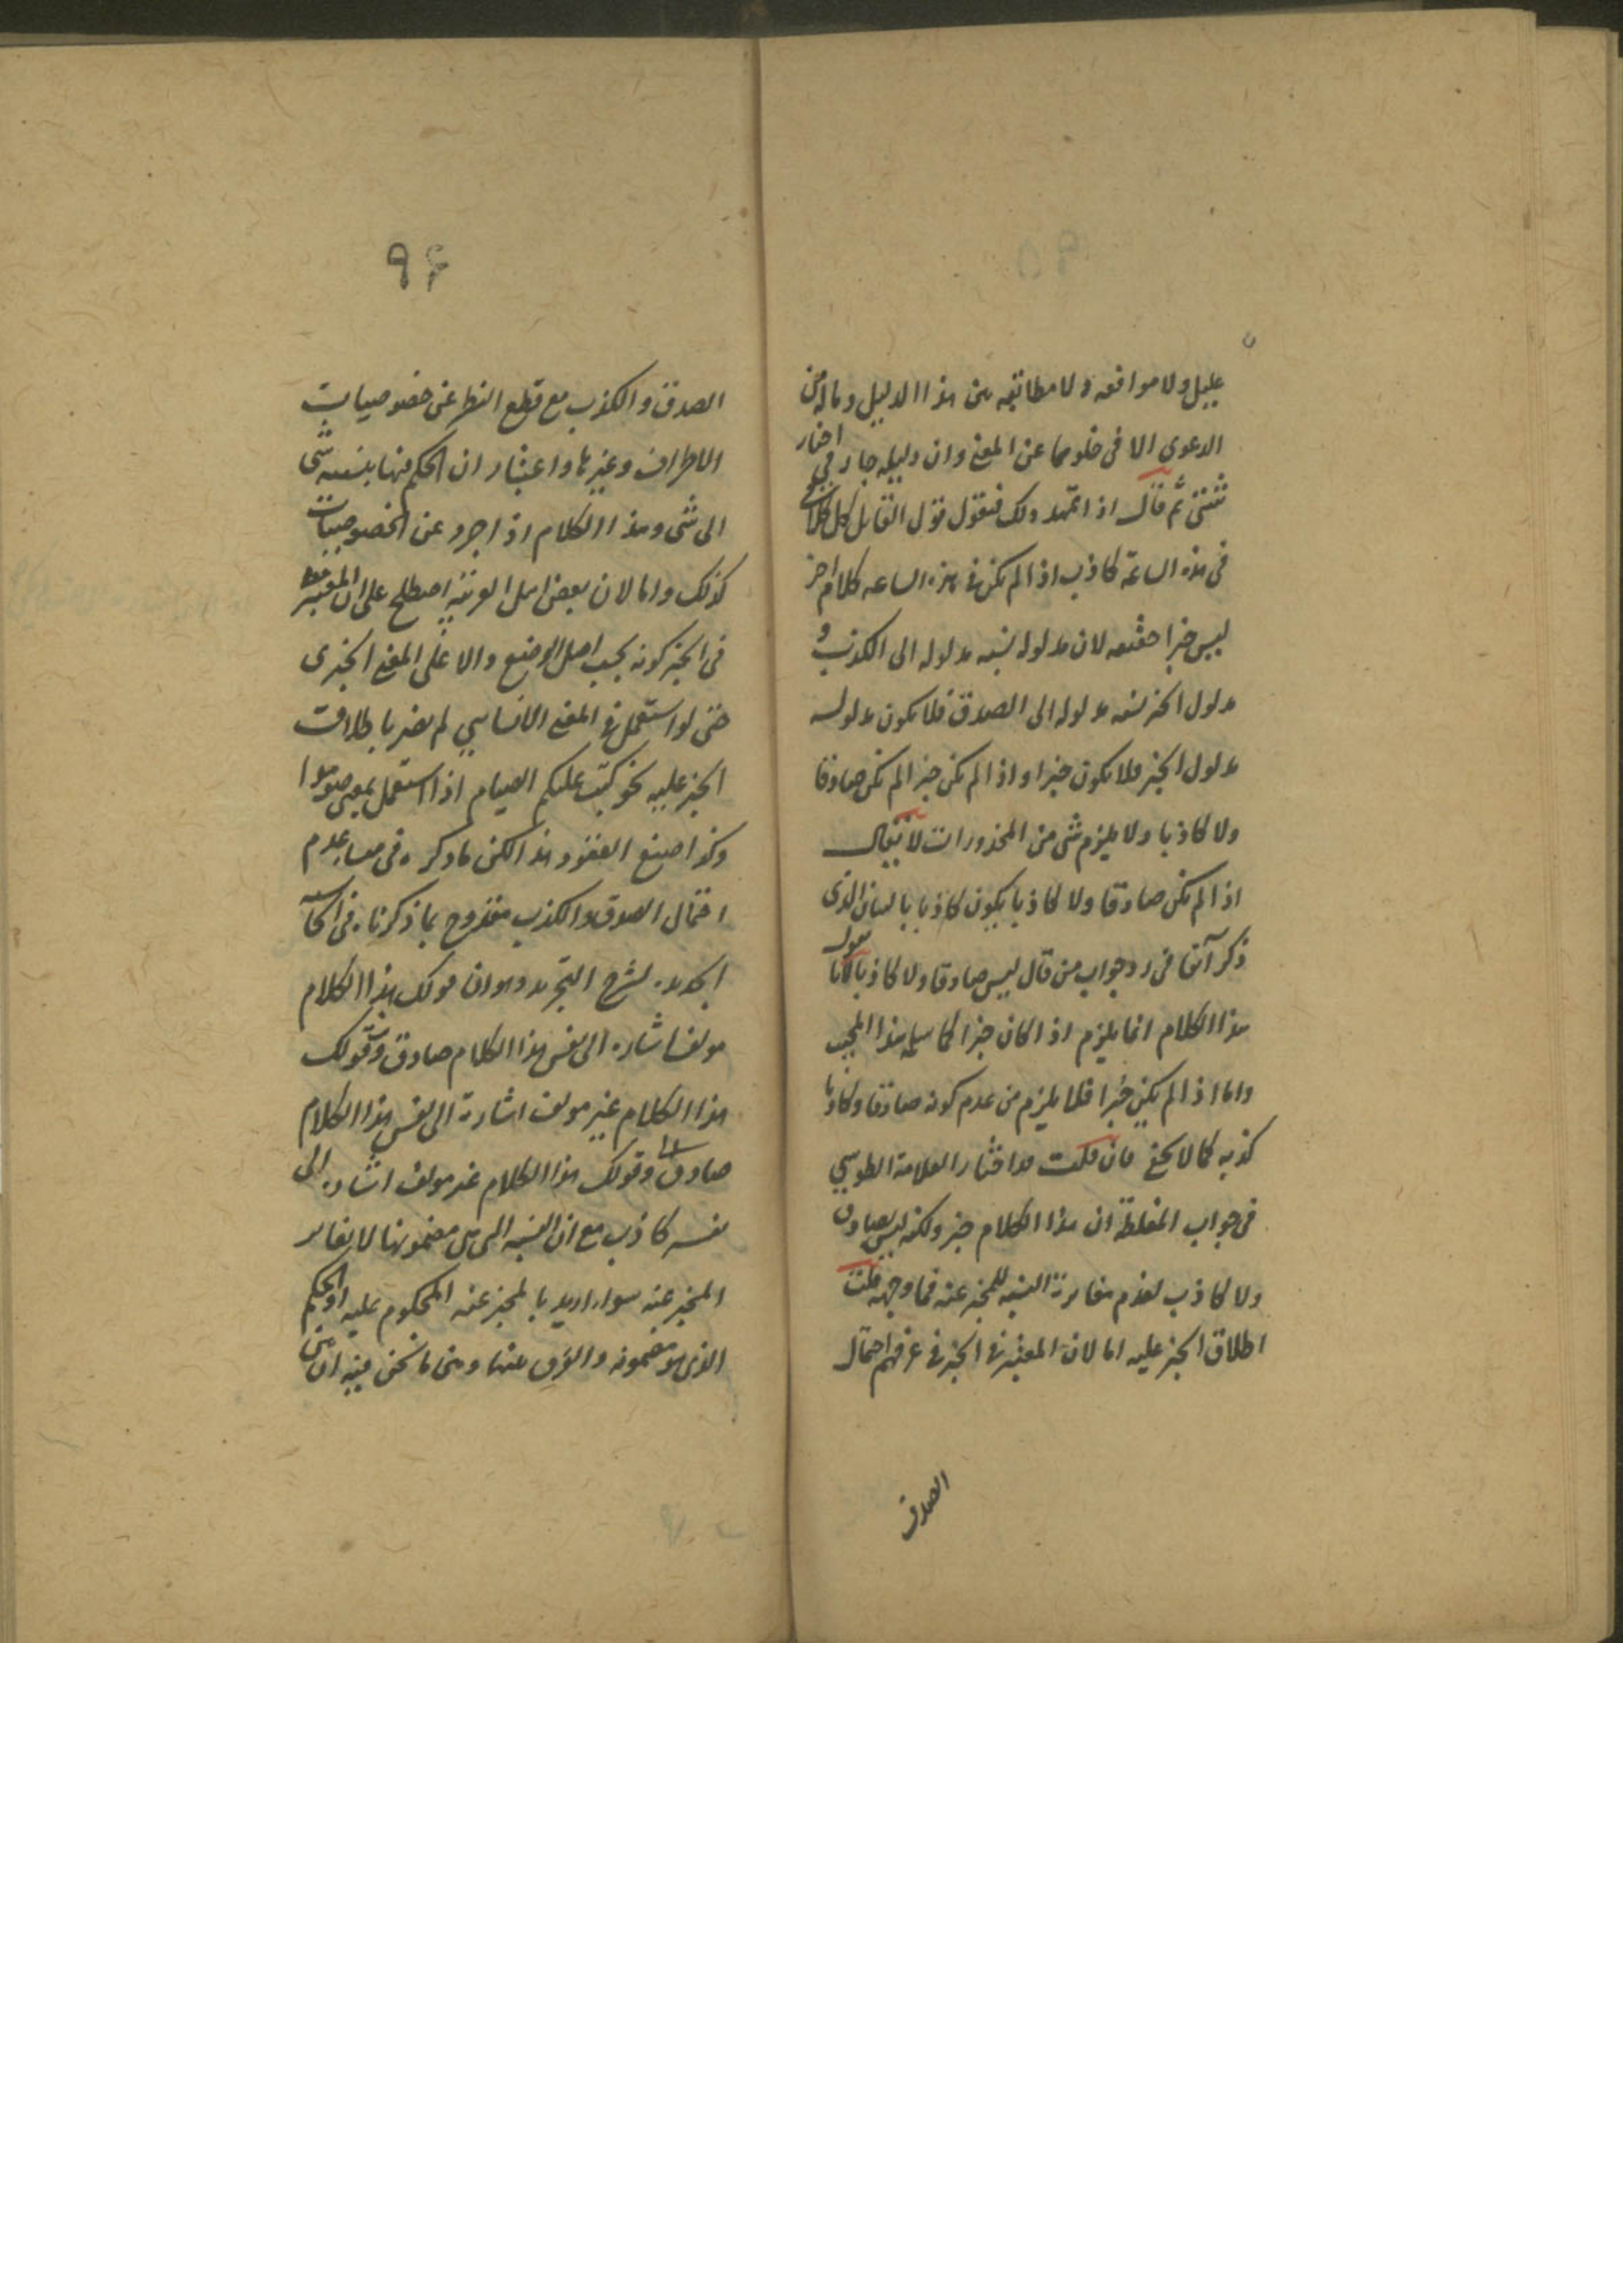 عليل ولا موافقه ولا مطابقه بين هذا الدليل وماله من
الدعوى الا فى خلوهما عن المعنى وان دليله جار فى اخبار
شتى ثم قال اذا تمهد ذلك فنقول قول القايل كل كلامى
فى هذه الساعة كاذب اذا لم يكن فى هذه الساعه كلام اخر
ليس خبرا حقيقه لان مدلوله نسبه مدلوله الى الكذب و
مدلول الخبر نسبه مدلوله الى الصدق فلا يكون مدلوله
مدلول الخبر فلا يكون خبرا واذا لم يكن خبرا لم يكن صادقا
ولا كاذبا ولا يلزم شى من المحذورات لا يقال
اذا لم يكن صادقا ولا كاذبا يكون كاذبا بالبيان الذى
ذكر آنفا فى رد جواب من قال ليس صادقا ولا كاذبا لانا نقول
هذا الكلام انما يلزم اذا كان خبرا كما سلمه هذا المجيب
واما اذا لم يكن خبرا فلا يلزم من عدم كونه صادقا وكاذبا
كذبه كما لا يخفى فان قلت قد اختار العلامة الطوسي
فى جواب المغلطة ان هذا الكلام خبر ولكنه ليس بصادق
ولا كاذب لعدم مغايرة النسبه للمخبر عنه فما وجهه قلت
اطلاق الخبر عليه اما لان المعتبر فى الخبر فى عرفهم احتمال
الصدق
٩۶
الصدق والكذب مع قطع النظر عن خصوصيات
الاطراف وغيرها واعتبار ان الحكم فيها بنسبه شى
الى شى وهذا الكلام اذا جرد عن الخصوصيات
كذلك واما لان بعض اهل العربيه اصطلح على ان المعتبر
فى الخبر كونه بحسب اصل الوضع دالا على المعنى الخبرى
حتى لو استعمل فى المعنى الانشاسي لم يضر باطلاق
الخبر عليه نحو كتب عليكم الصيام اذا استعمل بمعنى صوموا
وكذا صيغ العقود هذا لكن ما ذكره فى عدم
احتمال الصدق والكذب مقدوح بما ذكرناه فى
الجديده لشرح التجريد وهو ان قولك هذا الكلام
مولف اشاره الى نفس هذا الكلام صادق وقولك
هذا الكلام غير مولف اشارة الى نفس هذا الكلام
صادق وقولك هذا الكلام غير مولف اشاره الى
نفسه كاذب مع ان النسبه التى هى مضمونها لا يغاير
المخبر عنه سواء اريد بالمخبر عنه المحكوم عليه او الحكم
الذى هو مضمونه والفرق بينها وبين ما نحن فيه ان بين